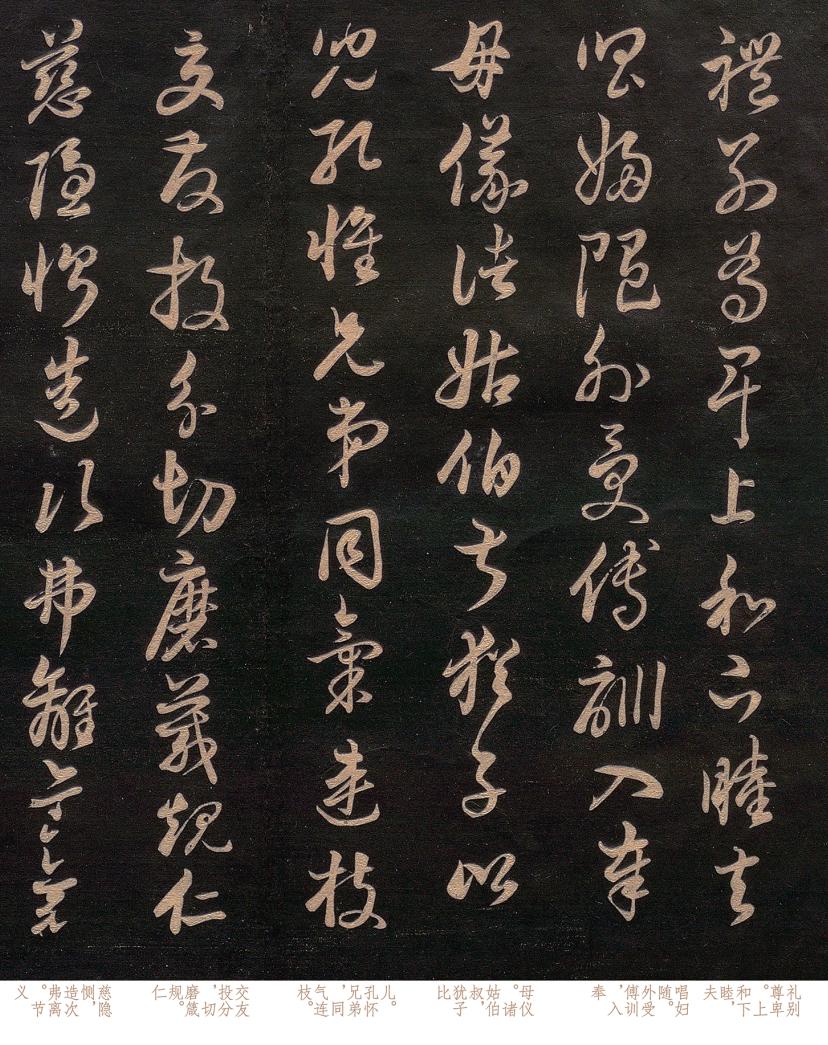 禮別尊卑上和下睦夫
唱婦隨外受傅訓入奉
母儀諸姑伯叔猶子比
兒孔懷兄弟同氣連枝
交友投分切磨箴規仁
慈隱惻造次弗離節義
礼别尊卑。上和,下睦,夫
唱妇随。外受傅训,入奉
母仪。诸姑,伯叔,犹子比
儿。孔怀兄弟,同气。连枝。
交友投分,切磨。箴规。仁
慈隐恻,造次弗离。节义